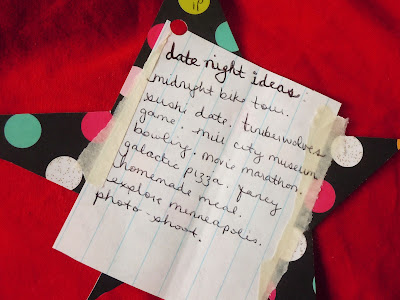 date night ideas.
midnight bike tour.
sushi date. timberwolves
game. mill city museum
bowling. movie marathon.
galactic pizza. fancy
homemade meal.
explore minneapolis.
photo-shoot.